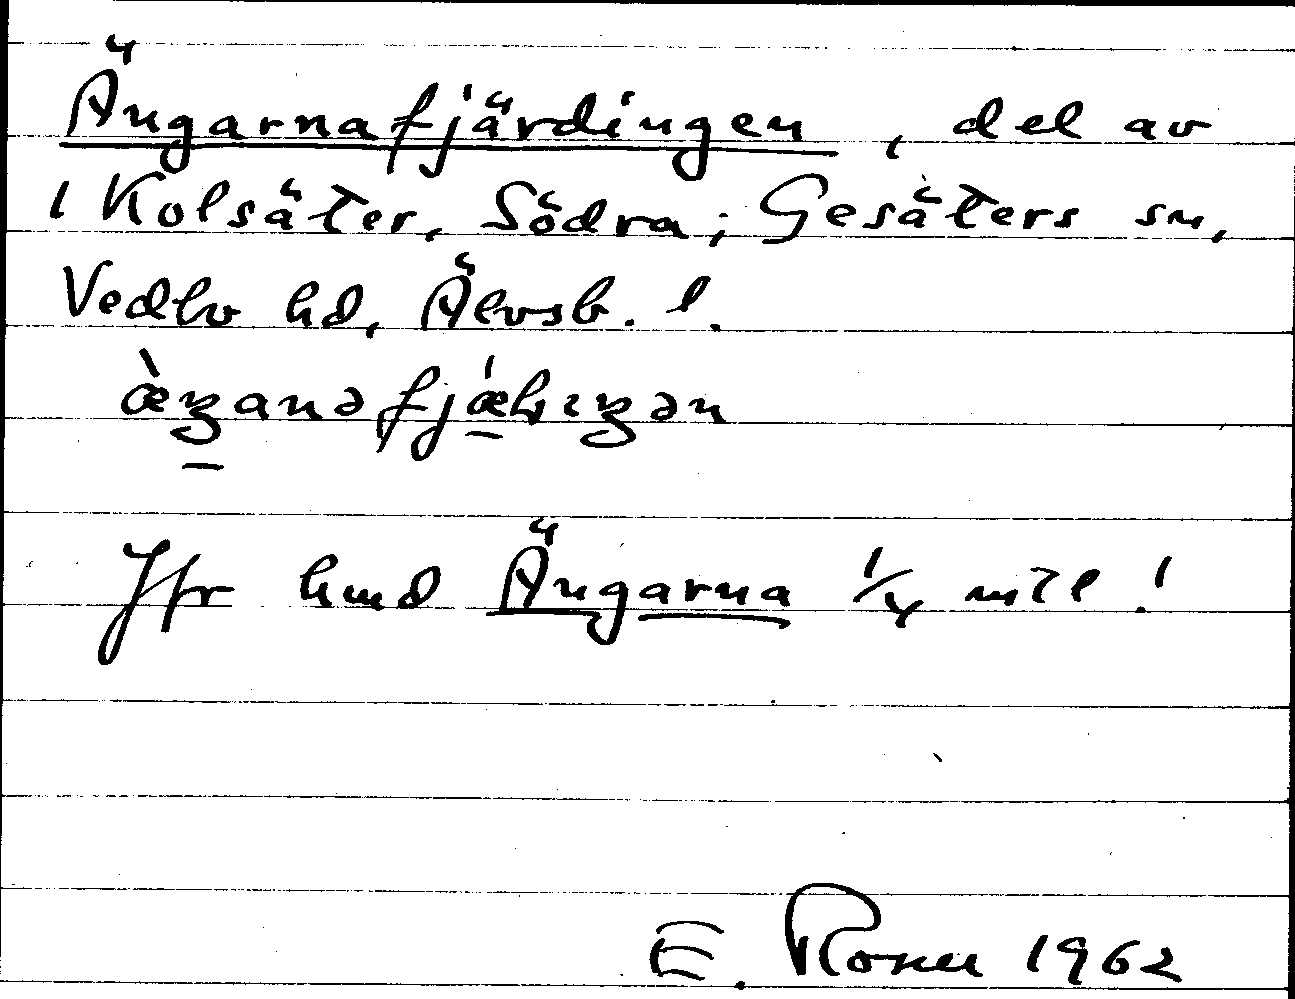 Ängarnafjärdingen, del av
1 Kolsäter, Södra; Gesäters sn,
Vedbo hd, Älvsb. l.
Jfr hmd Ängarna 1/4 mtl!
E. 1962